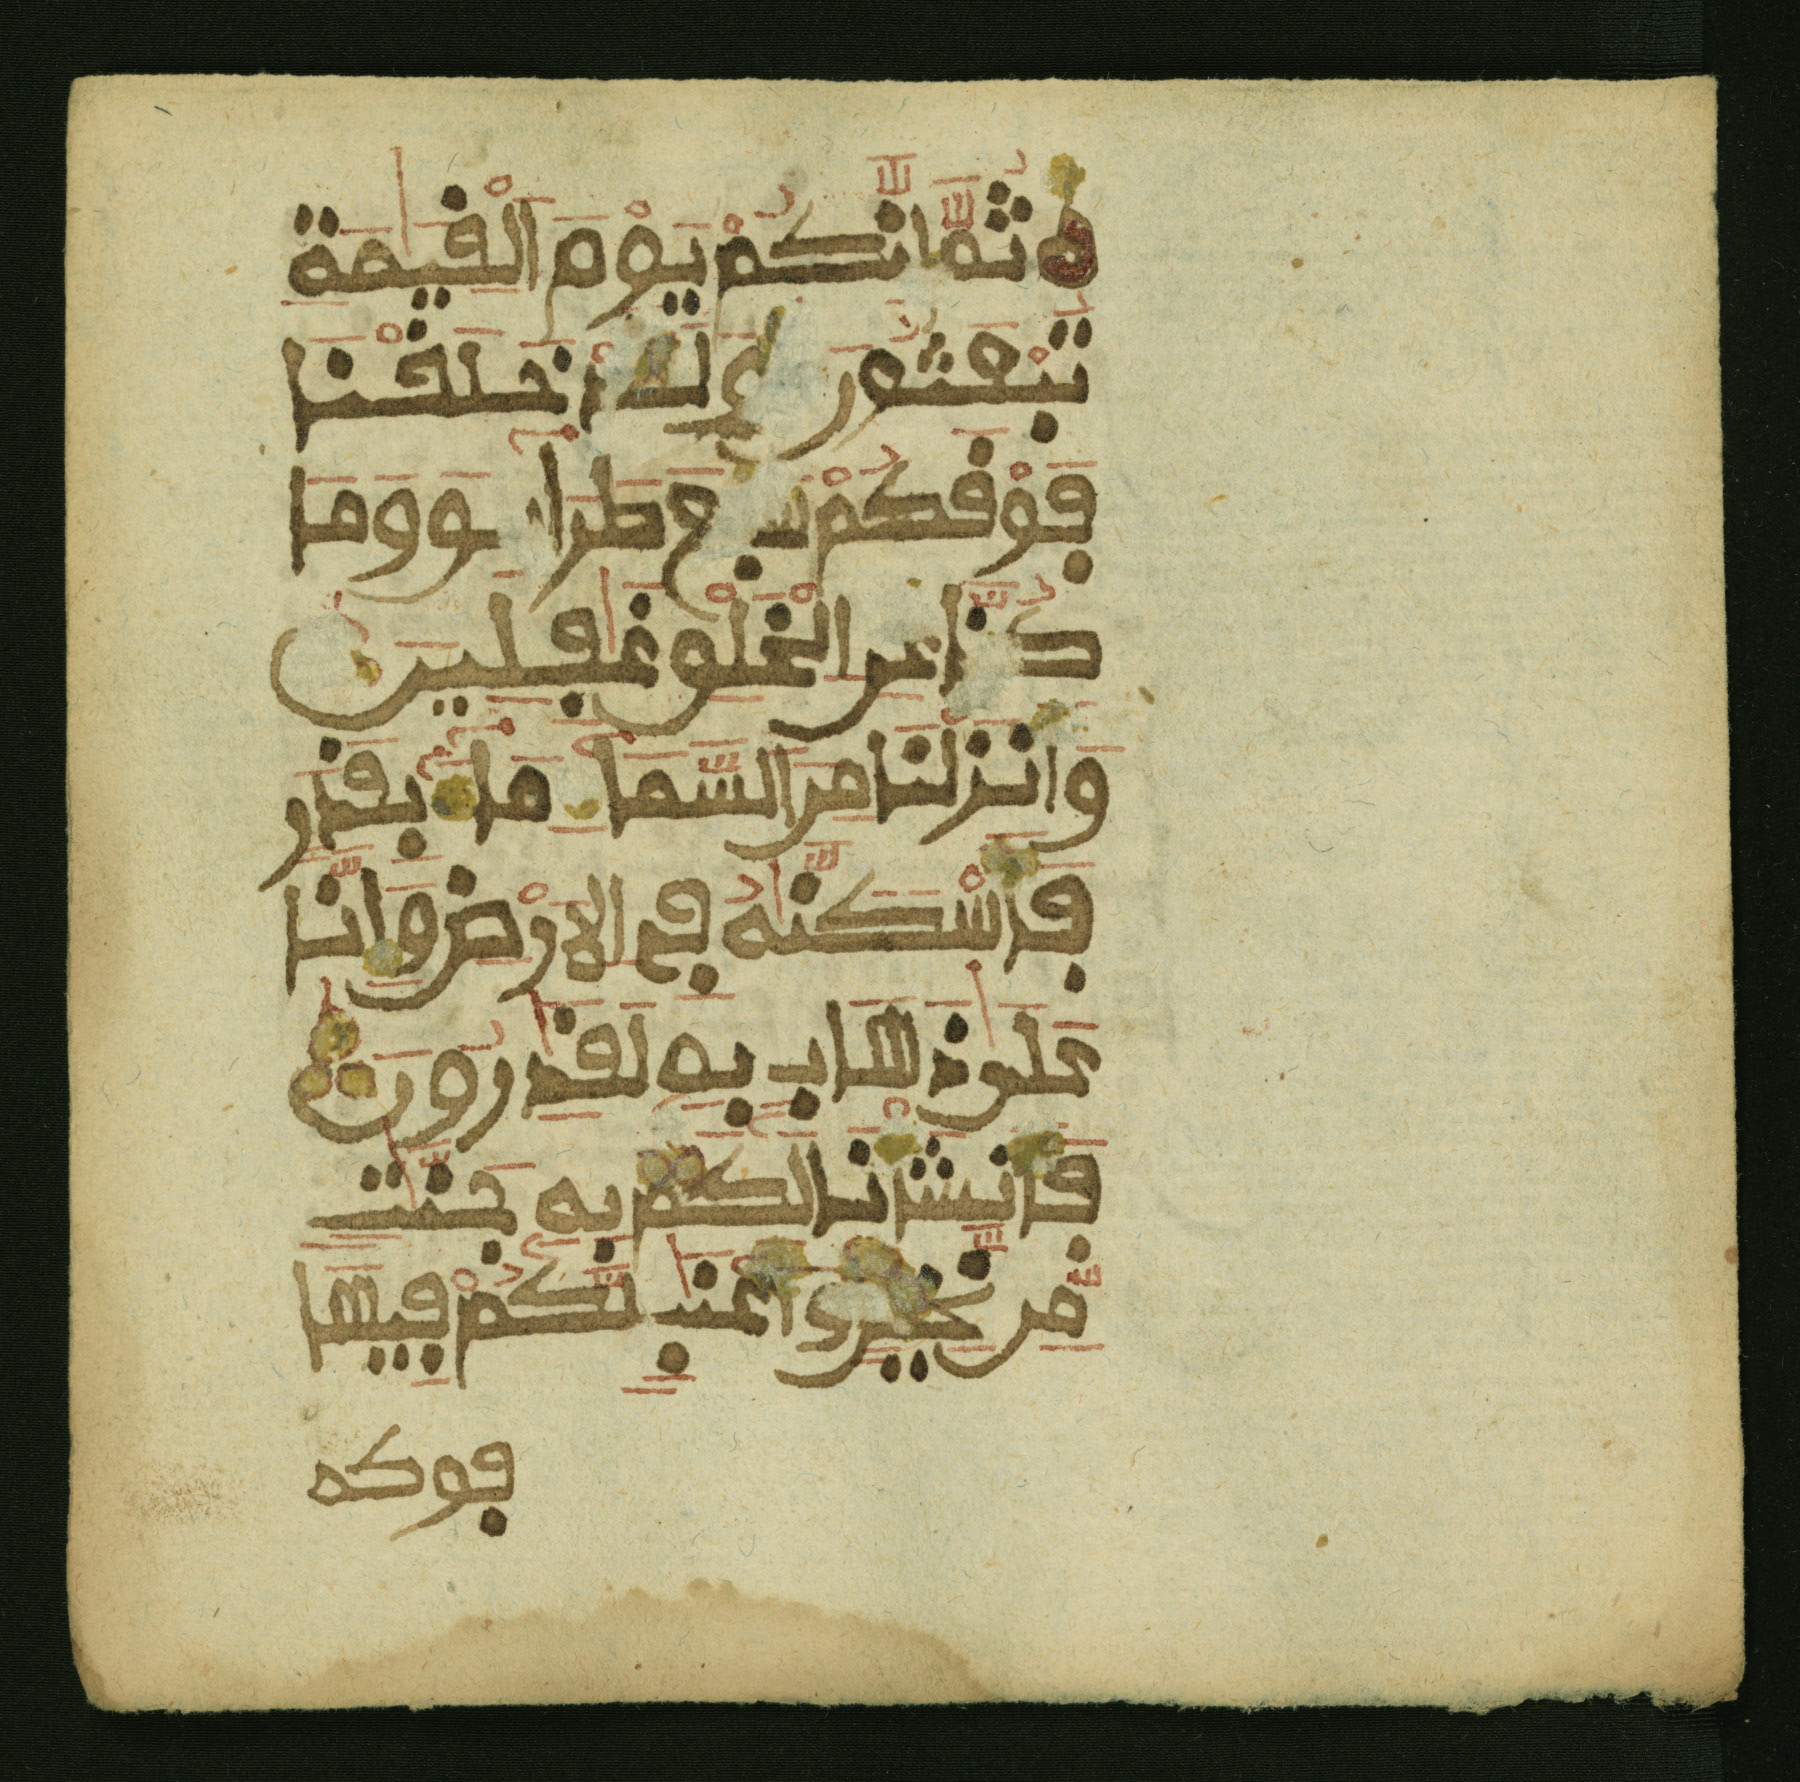 ثُمَّ إِنَّكُمْ يَوْمَ الْقِيٰمَةِ
تُبْعَثُونَ وَلَقَدْ خَلَقْنَا
فَوْقَكُمْ سَبْعَ طَرَآئِقَ وَمَا
كُنَّا عَنِ الْخَلْقِ غٰفِلِينَ
وَأَنزَلْنَا مِنَ السَّمَآءِ مَآءً بِقَدَرٍ
فَأَسْكَنّٰهُ فِي الْأَرْضِ وَإِنَّا
عَلَىٰ ذَهَابٍ بِهِ لَقٰدِرُونَ
فَأَنشَأْنَا لَكُم بِهِ جَنّٰتٍ
مِّن نَّخِيلٍ وَأَعْنٰبٍ لَّكُمْ فِيهَا
فوكه